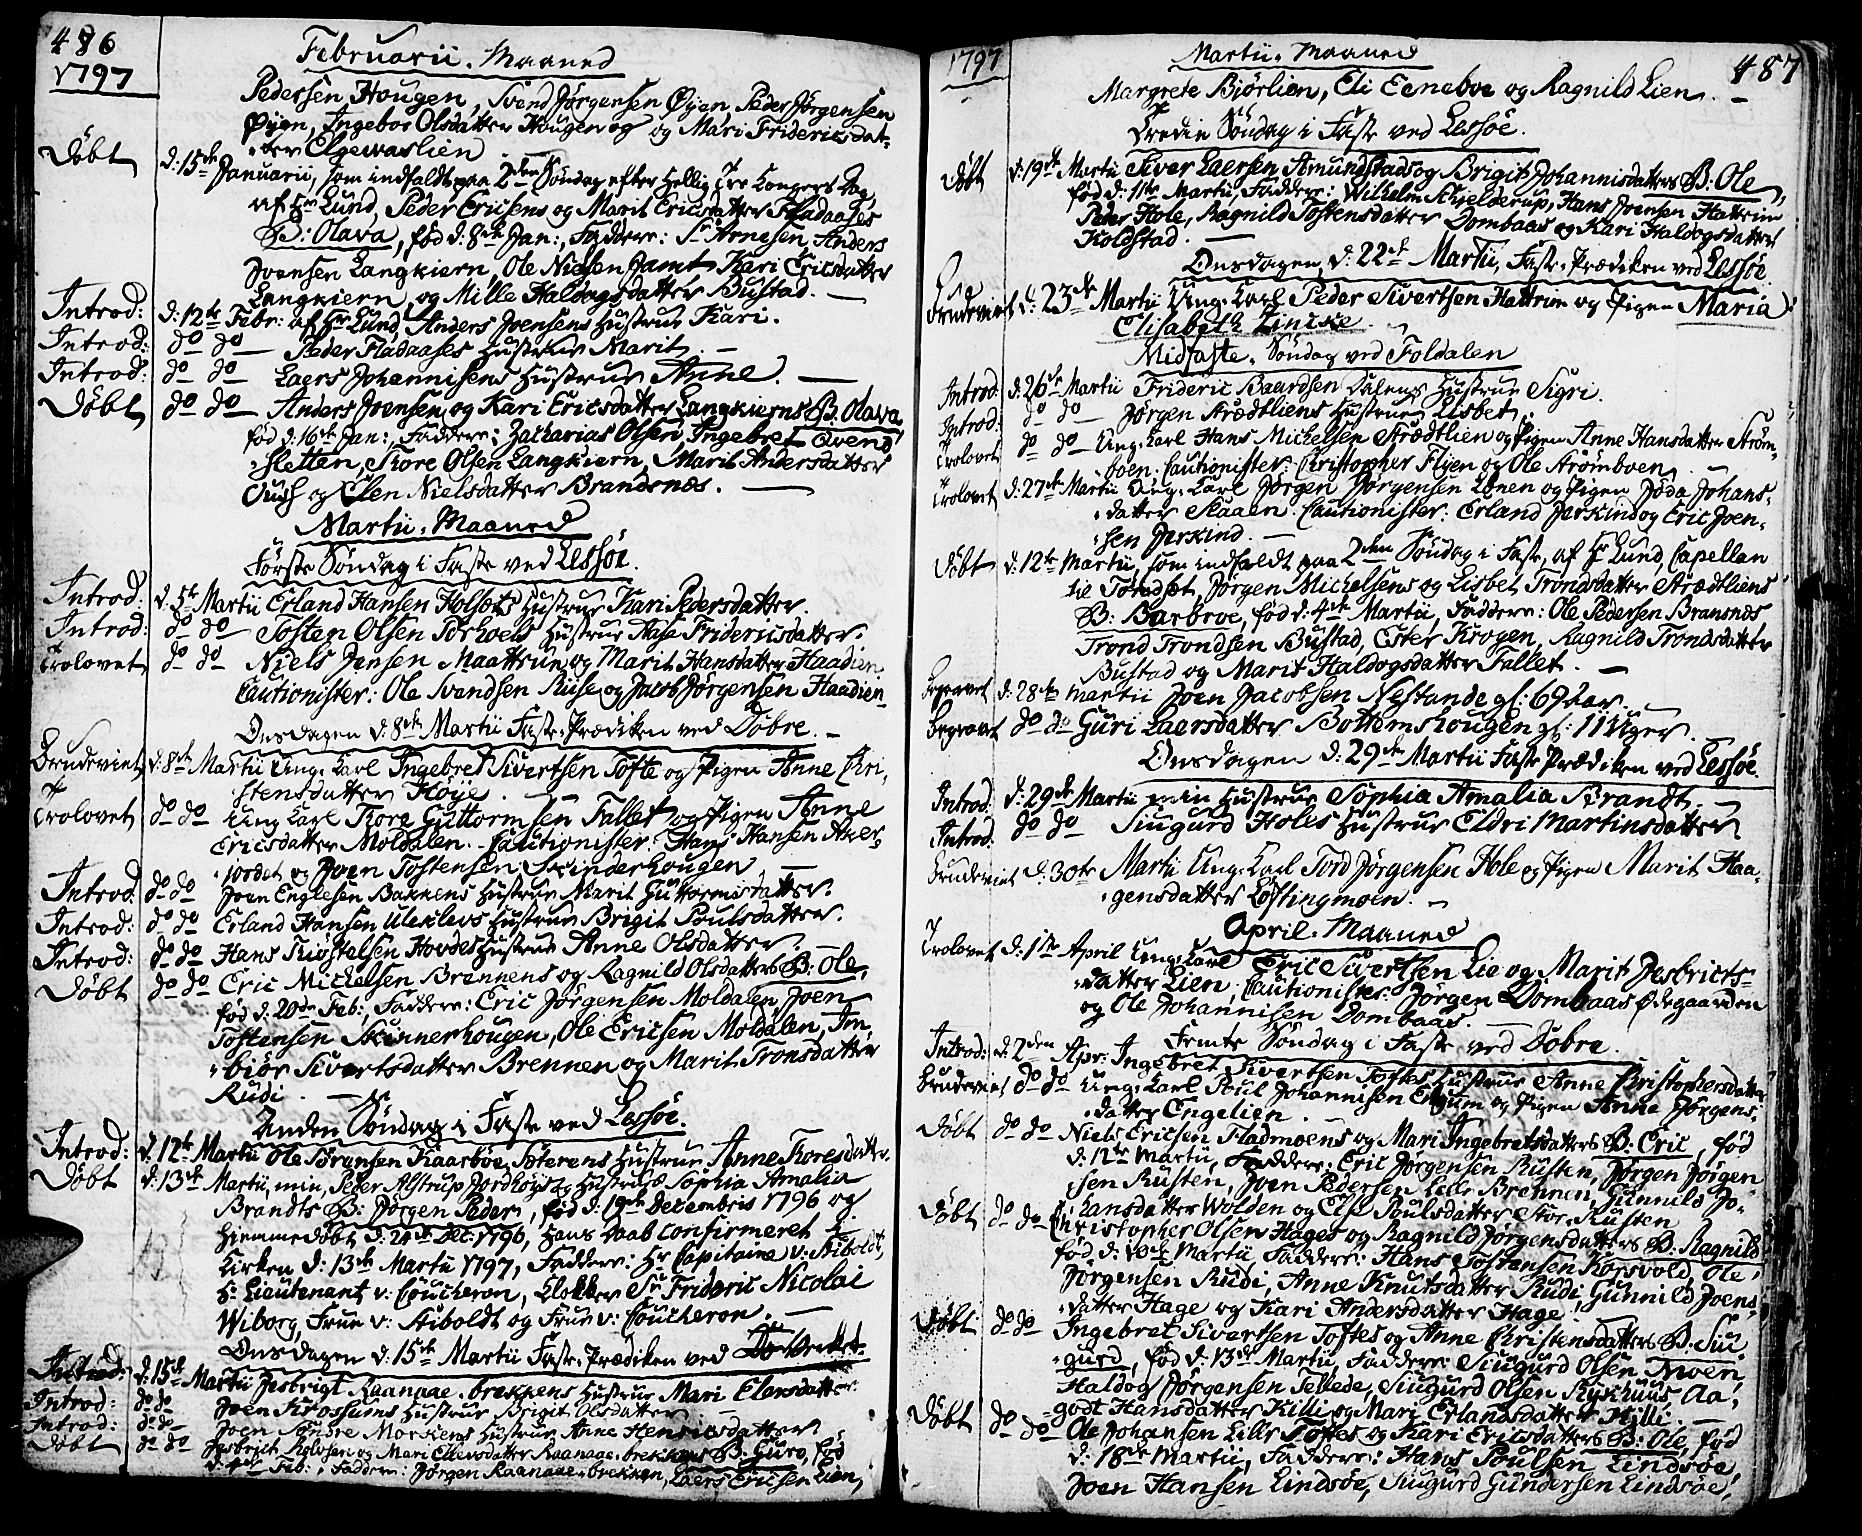 486
1797
Februarii. Maaned
Pedersen Hougen, Svend Jørgensen Øyen, Peder Jørgensen
Øyen, Ingebor Olsdatter Hougen og og Mari Friderichsdat-
ter Elgevaslien
Døbt d: 15de Januarii, som indfaldt paa 2den Søndag efter Hellig Tre Kongers Dag,
af Hr Lund, Peder Ericsens og Marit Ericsdatter Fladaases
B: Olava, fød d: 8de Jan:, Faddere: Sr Arnesen, Anders
Joensen Langkiern, Ole Nielsen Jamt, Kari Ericsdatter
Langkiern og Mille Haldogsdatter Bustad. —
Introd: d: 12te Febr: af Hr Lund, Anders Joensens Hustrue Kari.
Introd: do do — Peder Fladaases Hustrue Marit. —
Introd: do do — Laers Johannisens Hustrue Anne. —
Døbt do do — Anders Joensen og Kari Ericsdatter Langkierns B. Olava,
fød d: 16de Jan:, Faddere: Zacharias Olsen, Ingebret Qvend-
sletten, Tore Olsen Langkiern, Marit Andersdatter
Qush og Elen Nielsdatter Brandsnæs. —
Martii. Maaned
Første Søndag i Faste ved Lessøe.
Introd: d. 5te Martii Erland Hansen Holsets Hustrue Kari Pedersdatter.
Introd: do do — Tosten Olsen Torhoels Hustrue Aase Fridericsdatter.
Trolovet do do Niels Jensen Maattrue og Marit Hansdatter Haadien
Cautionister: Ole Svendsen Riise og Jacob Jørgensen Haadien
Onsdagen d: 8de Martii Faste-Prædiken ved Dobre. —
Brudeviet d: 8de Martii Ung-Karl Ingebret Sivertsen Tofte og Pigen Anne Chri-
stensdatter Høye
Trolovet do do Ung Karl Tore Guttormsen Fallet og Pigen Anne
Ericsdatter Moldalen. Cautionister: Hans Hansen Aker-
jordet og Joen Tostensen Skinderhougen —
Introd do do Joen Englesen Bakkens Hustrue Marit Guttormsdatter.
Introd: do do Erland Hansen Uleklevs Hustrue Brigit Poulsdatter.
Introd: do do Hans Kiøstelsen Hovdes Hustrue Anne Olsdatter. —
Døbt do do Eric Mickelsen Brennens og Ragnild Olsdatters B: Ole,
fød d. 20de Feb:, Faddere: Eric Jørgensen Moldalen, Joen
Tostensen Skinnerhougen, Ole Ericsen Moldalen, Im-
biør Sivertsdatter Brennen og Marit Tronsdatter
Rudi. —
Anden Søndag i Faste ved Lessøe.
Introd: d. 12te Martii Ole Sørensen Kaarbøe, Hustrue Anne Toresdatter.
Døbt d: 13de Martii, min, Peder Alstrup Jordhøys og Hustrue Sophia Amalia
Brandts B: Jørgen Peder, fød d: 19de Decembris 1796 og
hiemmedøbt d: 24de Dec: 1796, hans Daab confirmeret i
Kirken d: 13de Martii 1797, Faddere: Hr Capitaine v: Aiboldt,
Hr Lieutenant v: Coucheron, Klokker Sr Frideric Nicolai
Wiborg, Frue v: Aiboldt og Frue v: Coucheron. —
Onsdagen d: 15de Martii Faste-Prædiken ved
Introd: d. 15de Martii Jesbrigt Raanaae-brekkens Hustrue Mari Elensdatter
Introd: do do Joen Kirossums Hustrue Brigit Olsdatter
Introd: do do Joen Søndre Morkens Hustrue Anne Henricsdatter.
Døbt do do Jesbrict Rolvsen og Mari Ellensdatter Raanaae-brekkens B: Guro, fød
d. 4de Feb:, Faddere: Jørgen Raanaae-brekken, Laers Ericsen Lien,
1797
Martii. Maaned
487
Margrete Bjørlien, Eli Eeneboe og Ragnild Lien. —
Tredie Søndag i Faste ved Lessøe.
Døbt d: 19de Martii Siver Laersen Amundstads og Brigit Johannisdatters B: Ole,
fød d: 11te Martii, Faddere: Wilhelm Schielderup, Hans Joensen Hattrim
Peder Hole, Ragnild Tostensdatter Dombaas og Kari Haldogsdatter
Koldstad. —
Onsdagen, d: 22de Martii, Faste-Prædiken ved Lessøe
Brudeviet d: 23de Martii Ung-Karl Peder Sivertsen Hattrim og Pigen Maria
Elisabeth Lincke
Midfaste-Søndag ved Foldalen
Introd: d: 26de Martii Frideric Baardsen Dalens Hustrue Sigri.
Introd: do do — Jørgen Strædtliens Hustrue Lisbet.
Trolovet do do Ung-Karl Hans Mickelsen Strædtlien og Pigen Anne Hansdatter Strøm-
boen. Cautionister: Christopher Flyen og Ole Strømboen. —
Trolovet d: 27de Martii Ung-Karl Jørgen Jørgensen Enen og Pigen Jøda Johans-
datter Slaaen. Cautionister: Erland Jerkind og Eric Joen-
sen Jerkind. —
Døbt d: 12te Martii, som indfaldt paa 2den Søndag i Faste, af Hr Lund, Capellan
til Tofndset, Jørgen Mickelsens og Lisbet Trondsdatter Strædtliens
B: Barbroe, fød d: 4de Martii, Faddere: Ole Pedersen Bransnæs
Trond Trondsen Bustad, Ester Krogen, Ragnild Trondsdatter
Bustad og Marit Haldogsdatter Fallet. —
Begravet d: 28de Martii Joen Jacobsen Nestande gl: 69 Aar. —
Begravet do do Guri Laersdatter Bottemshougen gl: 11 Uger. —
Onsdagen d: 29de Martii Faste Prædiken ved Lessøe
Introd: d: 29de Martii min Hustrue Sophia Amalia Brandt. —
Introd: do do Siugurd Holes Hustrue Eldri Martinsdatter
Brudeviet d: 30te Martii Ung-Karl Tord Jørgensen Hole og Pigen Marit Haa-
gensdatter Løftingmoen. —
April. Maaned
Trolovet d: 1ste April Ung-Karl Eric Sivertsen Lie og Marit Jesbricts-
datter Lien. Cautionister: Jørgen Dombaas Ødegaarden
og Ole Johannisen Dombaas. —
Femte Søndag i Faste ved Dobre.
Introd: d: 2den Apr: Ingebret Sivertsen Toftes Hustrue Anne Christophersdatter
Brudeviet do do Ung-Karl Poul Johannisen Engum og Pigen Anne Jørgens-
datter Engelien. —
Døbt do do Niels Ericsen Fladmoens og Mari Ingebretsdatters B: Eric, fød
d: 12te Martii, Faddere: Eric Jørgensen Rusten, Jørgen Jørgen-
sen Rusten, Joen Pedersen Lille Brennen, Gunnild Jo-
hansdatter Wolden og Else Poulsdatter Store Rusten
Døbt do do Christopher Olsen Hages og Ragnild Jørgensdatters B: Ragnild
fød d: 10de Martii, Faddere: Hans Tostensen Korsvold, Ole
Jørgensen Rudi, Anne Knutsdatter Rudi, Gunnild Joens-
datter Hage og Kari Andersdatter Hage.
Døbt do do Ingebret Sivertsen Toftes og Anne Christensdatters B: Siu-
gurd, fød d: 13de Martii, Faddere: Siugurd Olsen Moen
Haldog Jørgensen Tellede, Siugurd Olsen Rykhuus, Aa-
godt Hansdatter Killi og Mari Erlandsdatter Killi. —
Døbt do do Ole Johansen Lille Toftes og Kari Ericsdatters B: Ole, fød
d: 18de Martii, Faddere: Hans Poulsen Lindsøe,
Joen Hansen Lindsøe, Siugurd Gundersen Lindsøe,